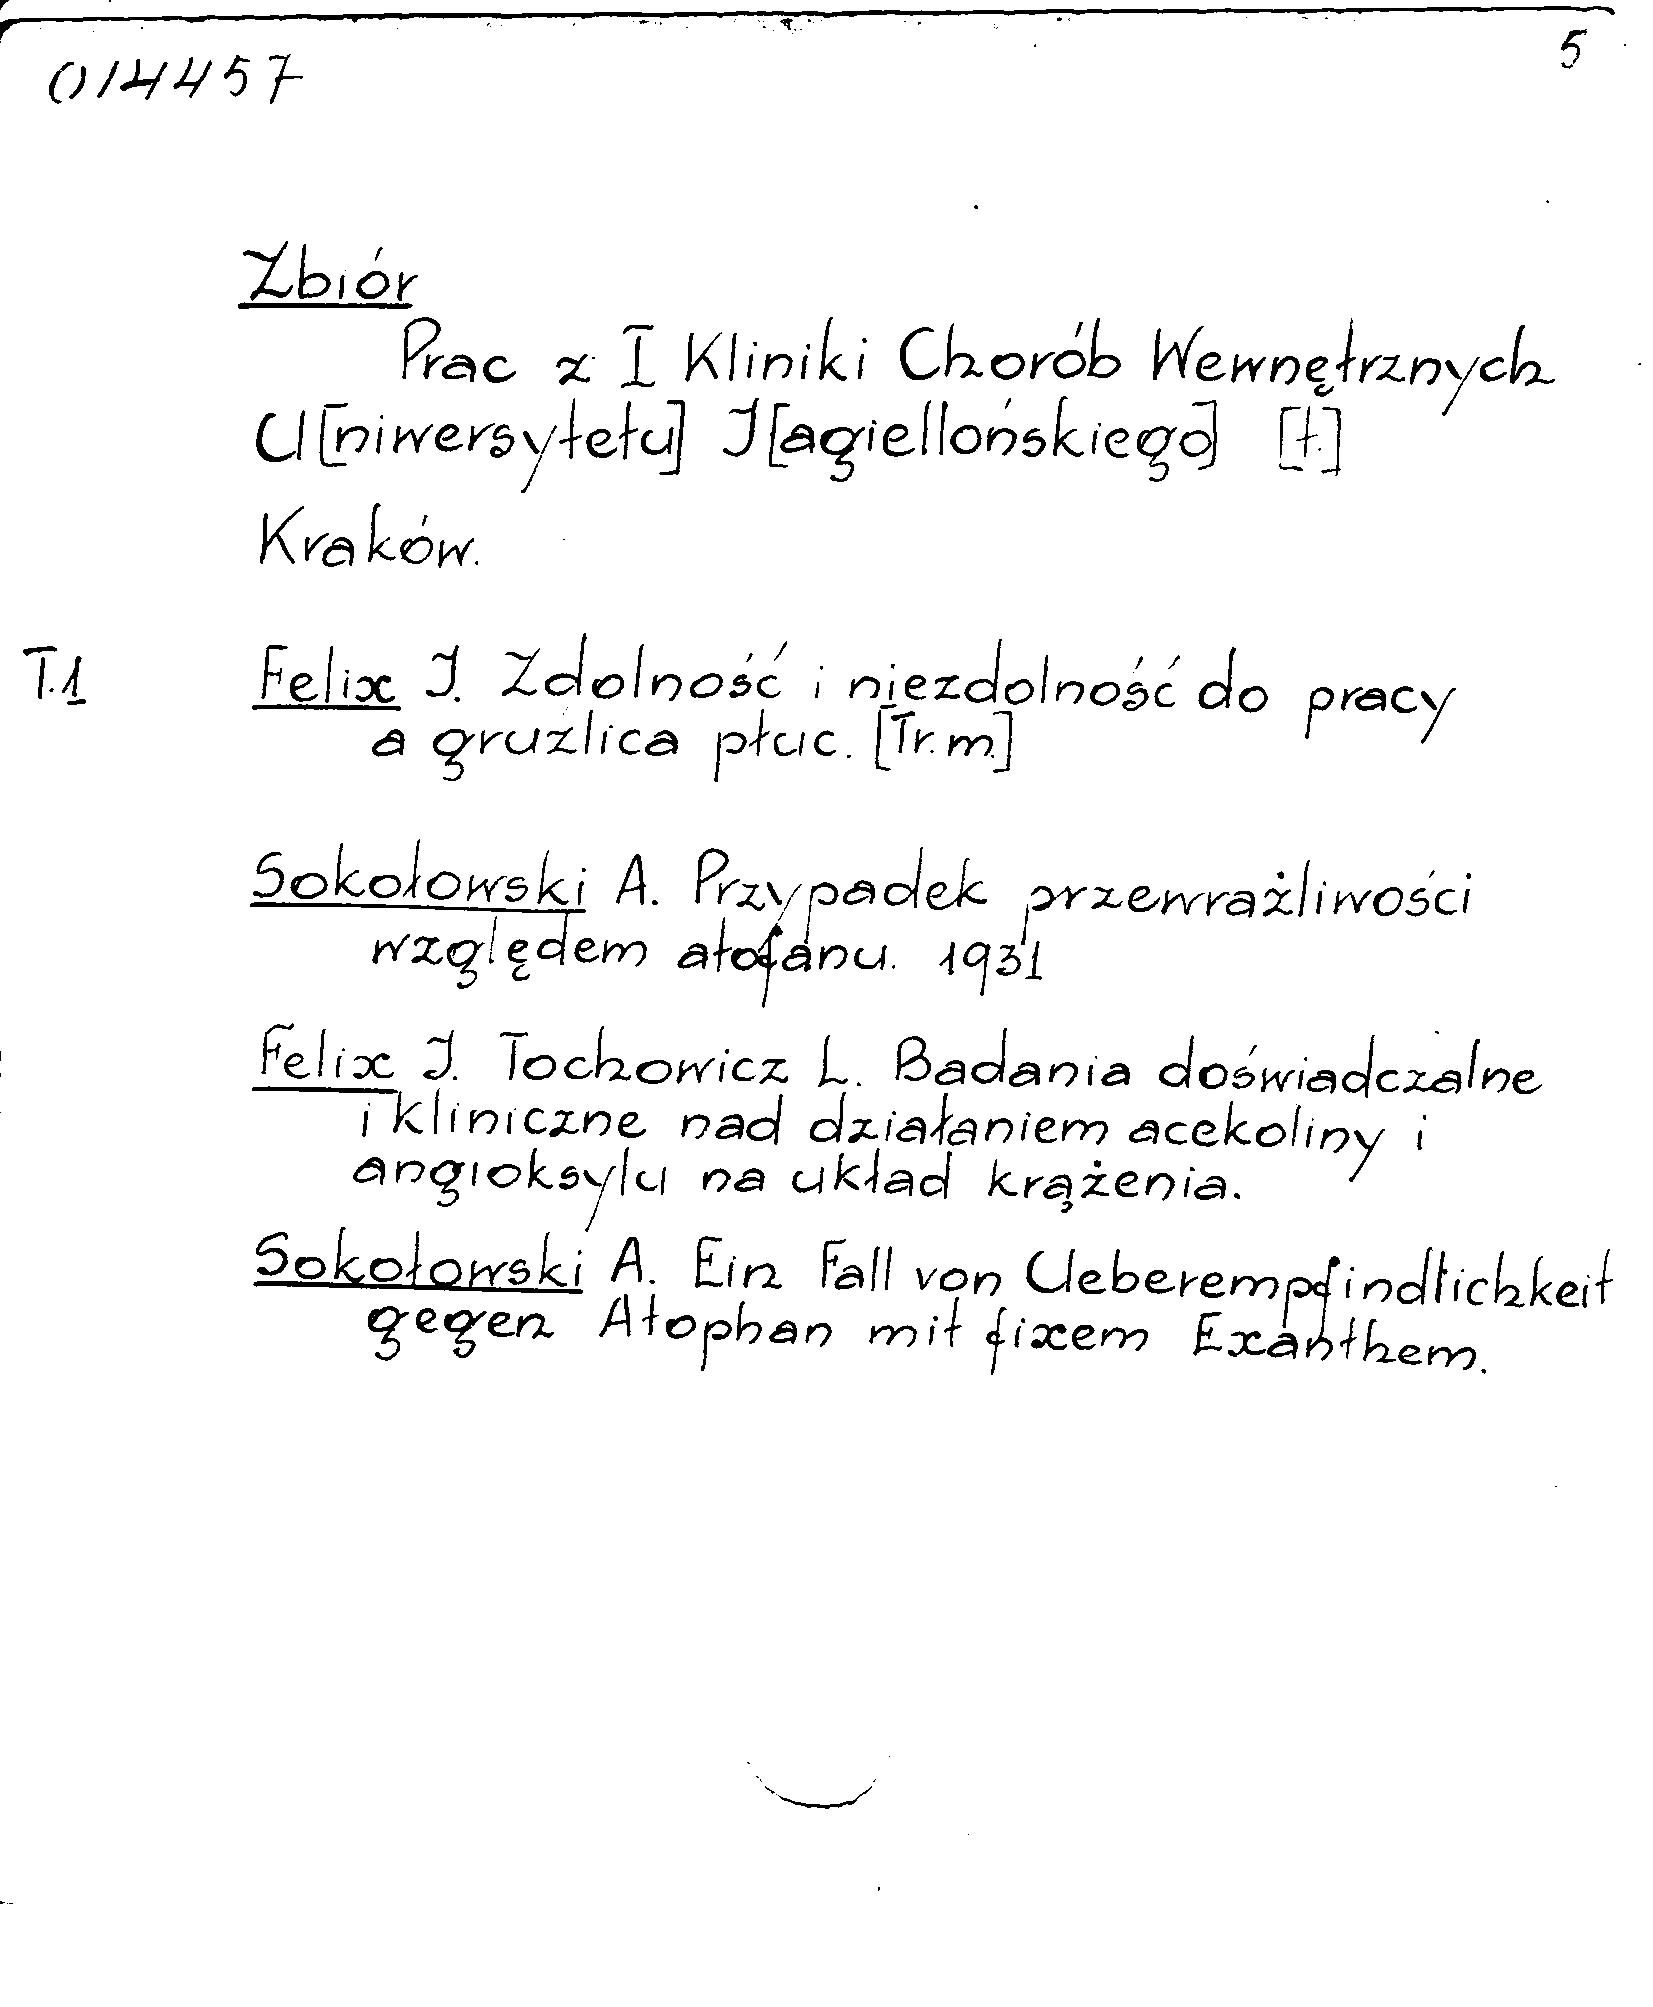 014457
5
Zbiór
Prac z I Kliniki Chorób Wewnętrznych
U[niwersytetu] J[agiellońskiego] [t.]
Kraków.
T.1 Felix J. Zdolność i niezdolność do pracy
a gruźlica płuc. [Tr. m.]
Sokołowski A. Przypadek przewrażliwości
względem atofanu. 1931
Felix J. Tochowicz L. Badania doświadczalne
i kliniczne nad działaniem acekoliny i
angioksylu na układ krążenia.
Sokołowski A. Ein Fall von Ueberempfindlichkeit
gegen Atophan mit fixem Exanthem.